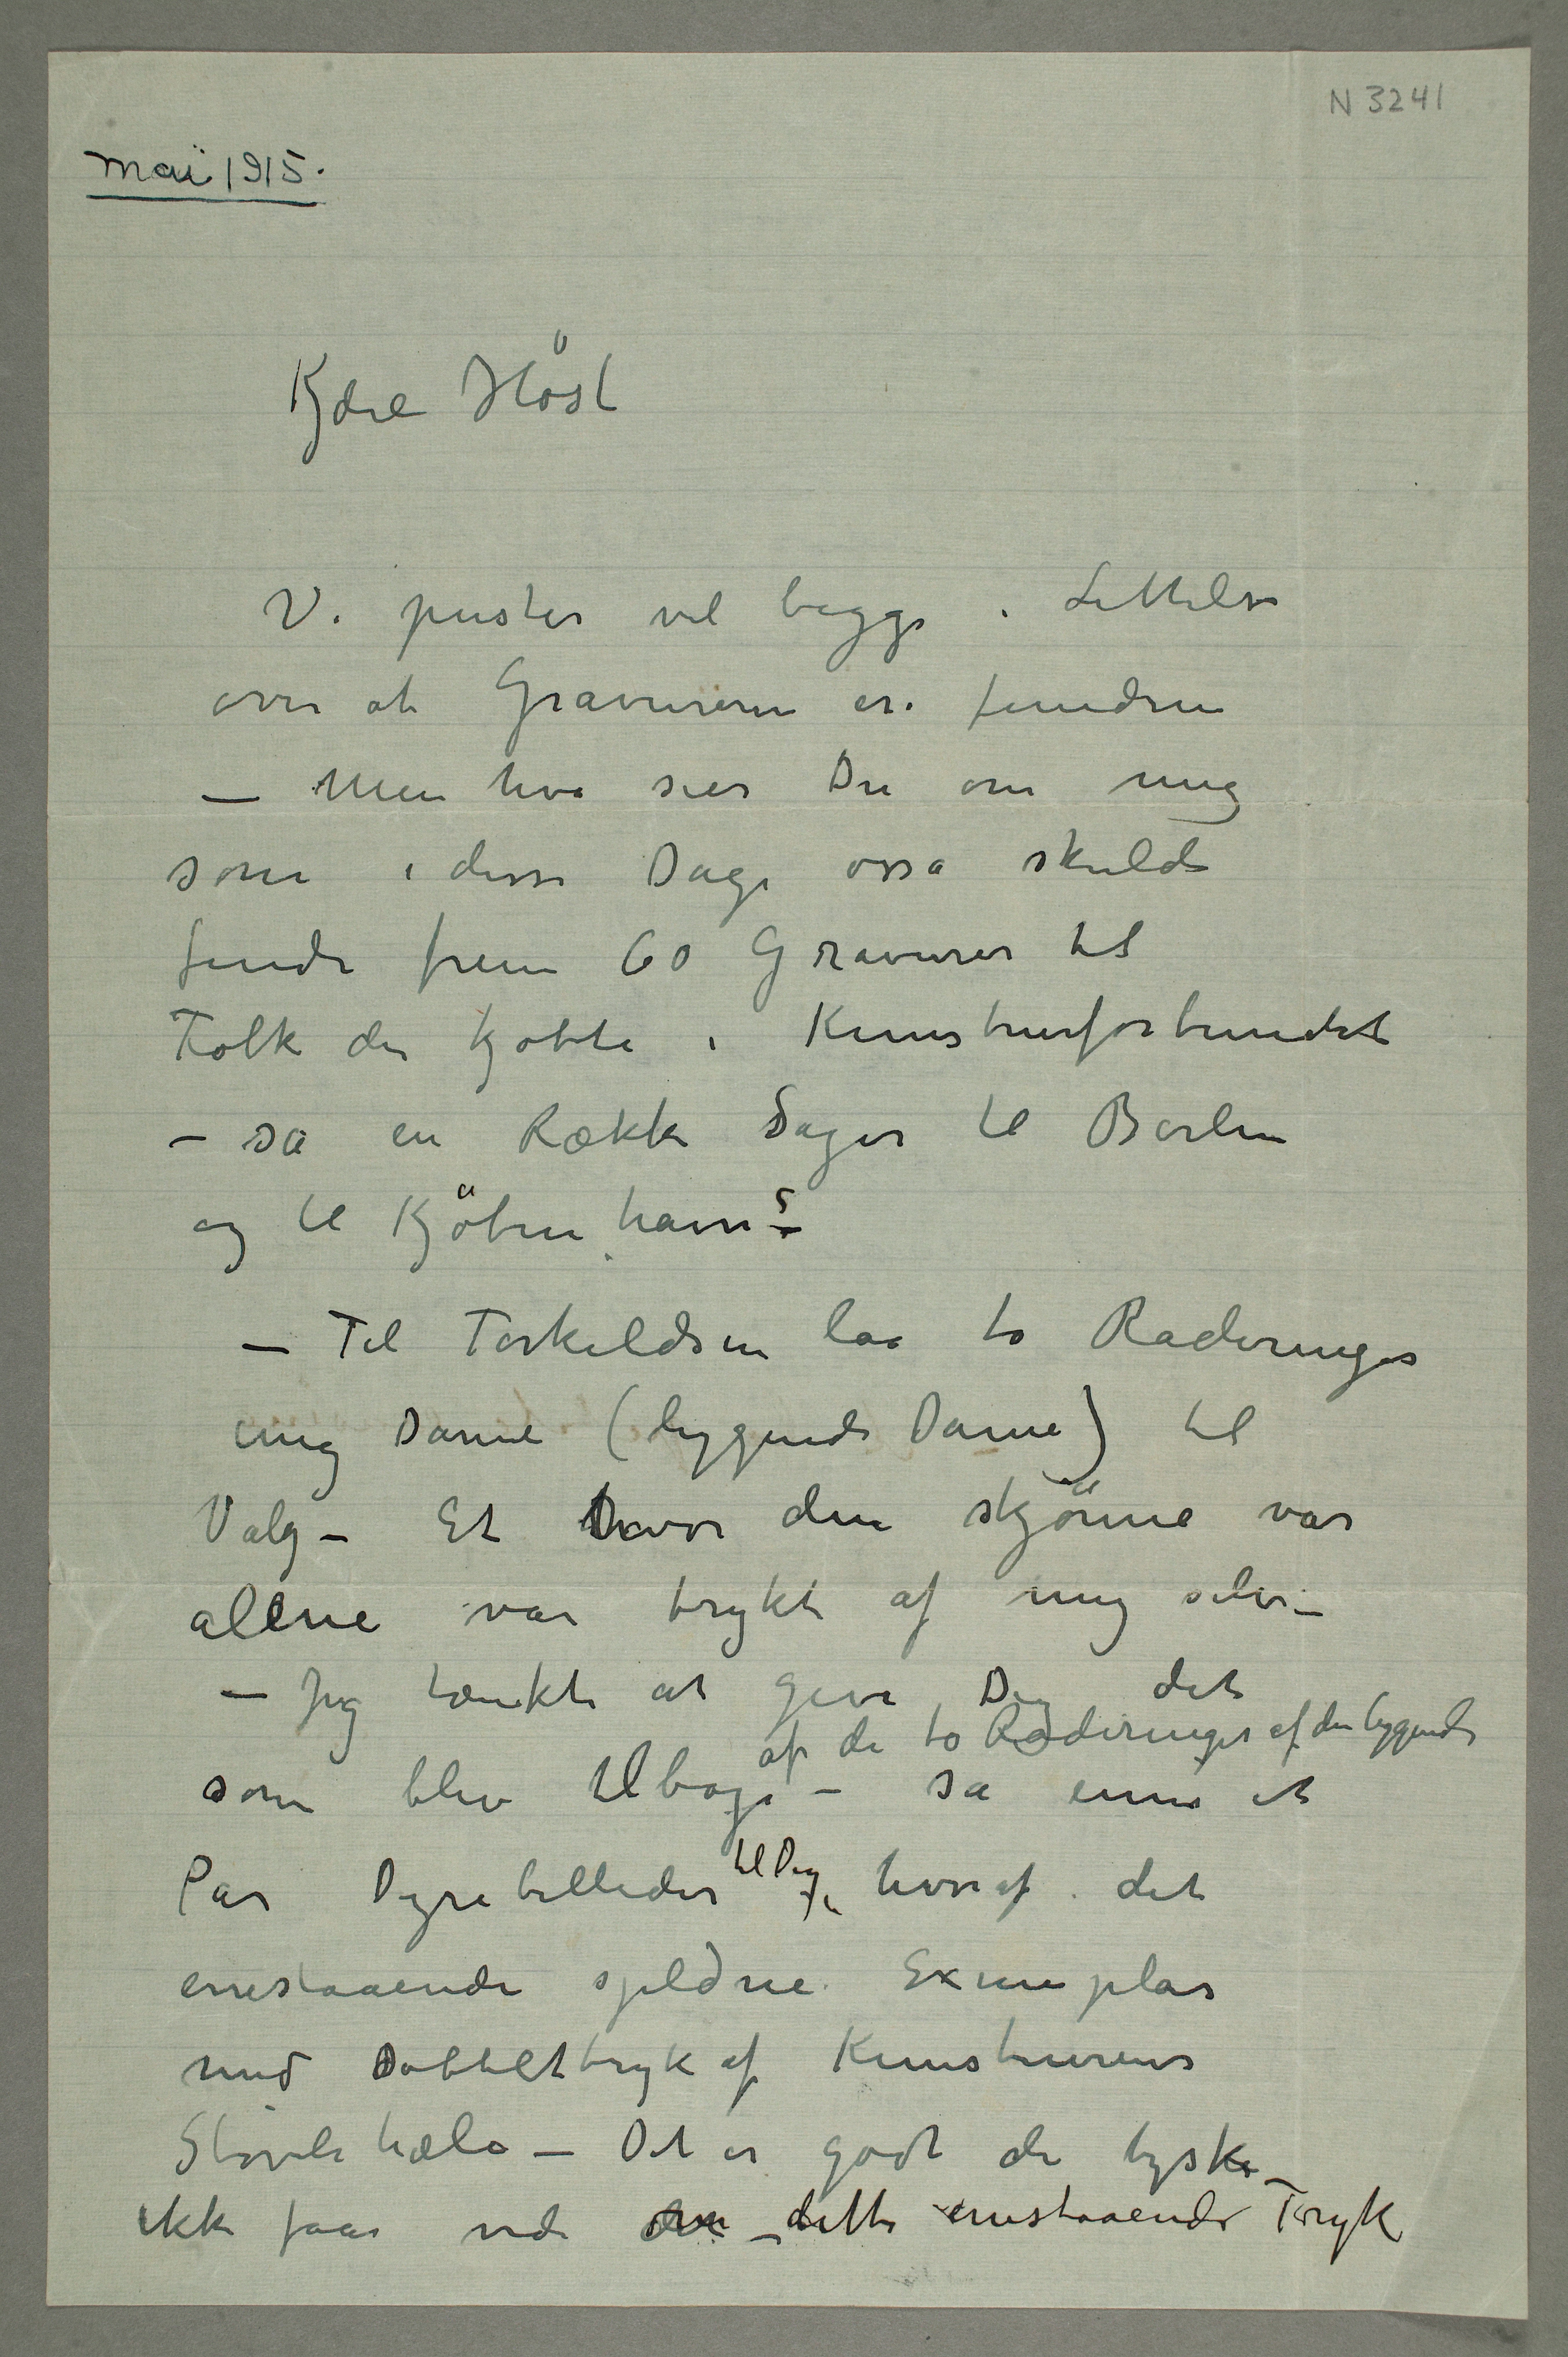 N 3241
mai 1915.
Kjære Höst
Vi puster vel begge i Lettelse
over at Gravurerne er funden
– Men hva sier Du om mig
som i disse Dage osså skulde
finde frem 60 Gravurer til
Folk der kjøbte i Kunstnerforbundet
– så en Række Sager til Berlin
og til Kjöbenhavn –
– Til Torkildsen laa to Raderinger
ung Dame (liggende Dame) til
Valg – Et hvor den skjönne var
allene var trykt af mig selv –
– Jeg tænkte at give Dig det
af de to Raderinger af den liggende
som blev tilbage – så ennu et
Par Dyrebilleder til Dig, hvoraf det
enestaaende spildne Exemplar
med Dobbelttryk af Kunstnerens
Støvlehæle – Det er godt de tyske
ikke faar vide om – dette enestaaende Tryk